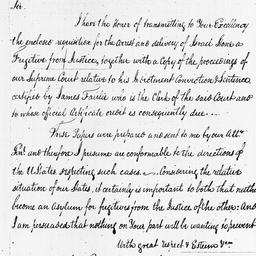 Sir.
I have the honor of transmitting to Your Excellency
the enclosed requisition for the arrest and delivery of Israel Stone as
Fugitive from Justice, together with a Copy of the proceedings of
our Supreme Court relative to his Indictment Conviction & Sentence
certified by James Fairlie who is the Clerk of the said Court and
to whose official Certificate credit is consequently due.
These Papers were prepared and sent to me by our Atty.
Genl. and therefore I presume are conformable to the directions of
the U States respecting such cases. Considering the relative
situation of our States, it certainly is important to both that neither
become an asylum for fugitives from the Justice of the other: And
I am persuaded that nothing on Your part will be wanting to prevent
With great respect & Esteem &ca